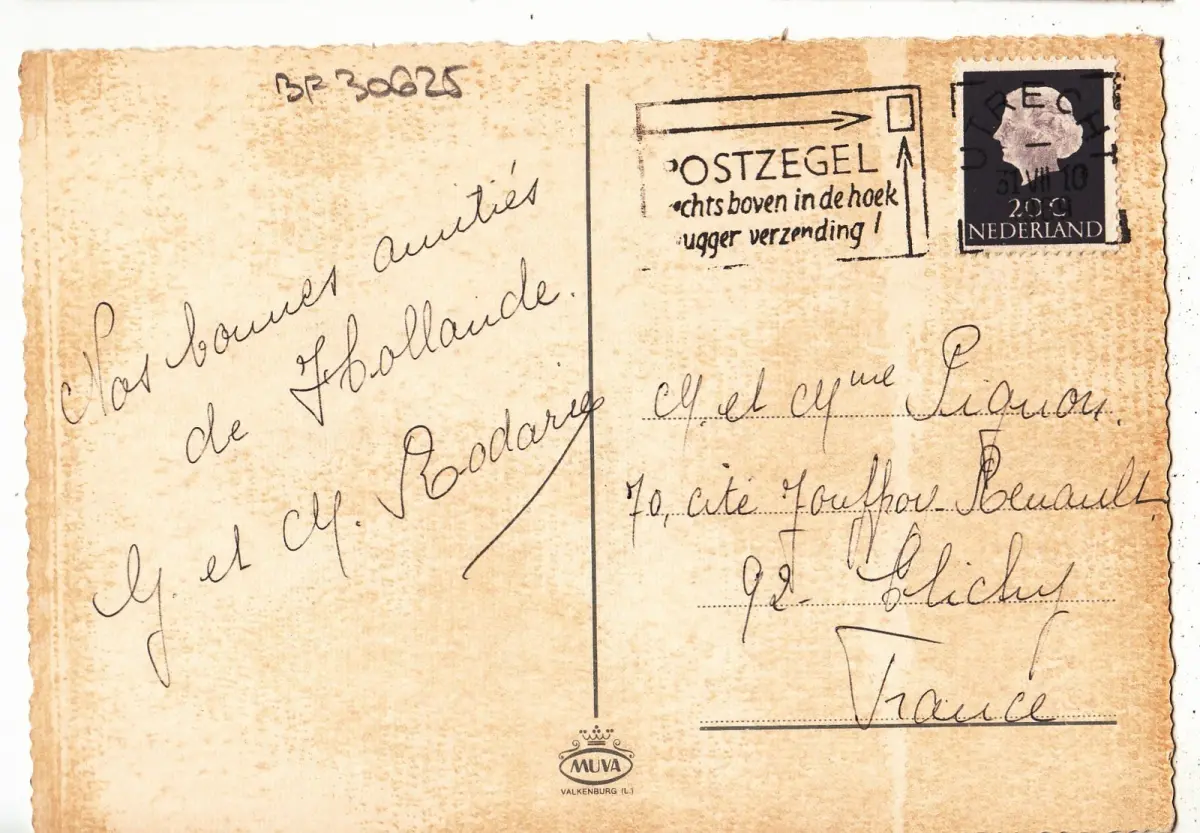 BF 30625
Nos bonnes amitiés
de Hollande.
G. et M. Rodarie
POSTZEGEL
chts boven in de hoek
ugger verzending !
UTRECHT
31 VII 10
20 C
NEDERLAND
M. et Mme Pignon.
70, cité Jouffroy-Renault
92- Clichy
France
MUVA
VALKENBURG (L.)